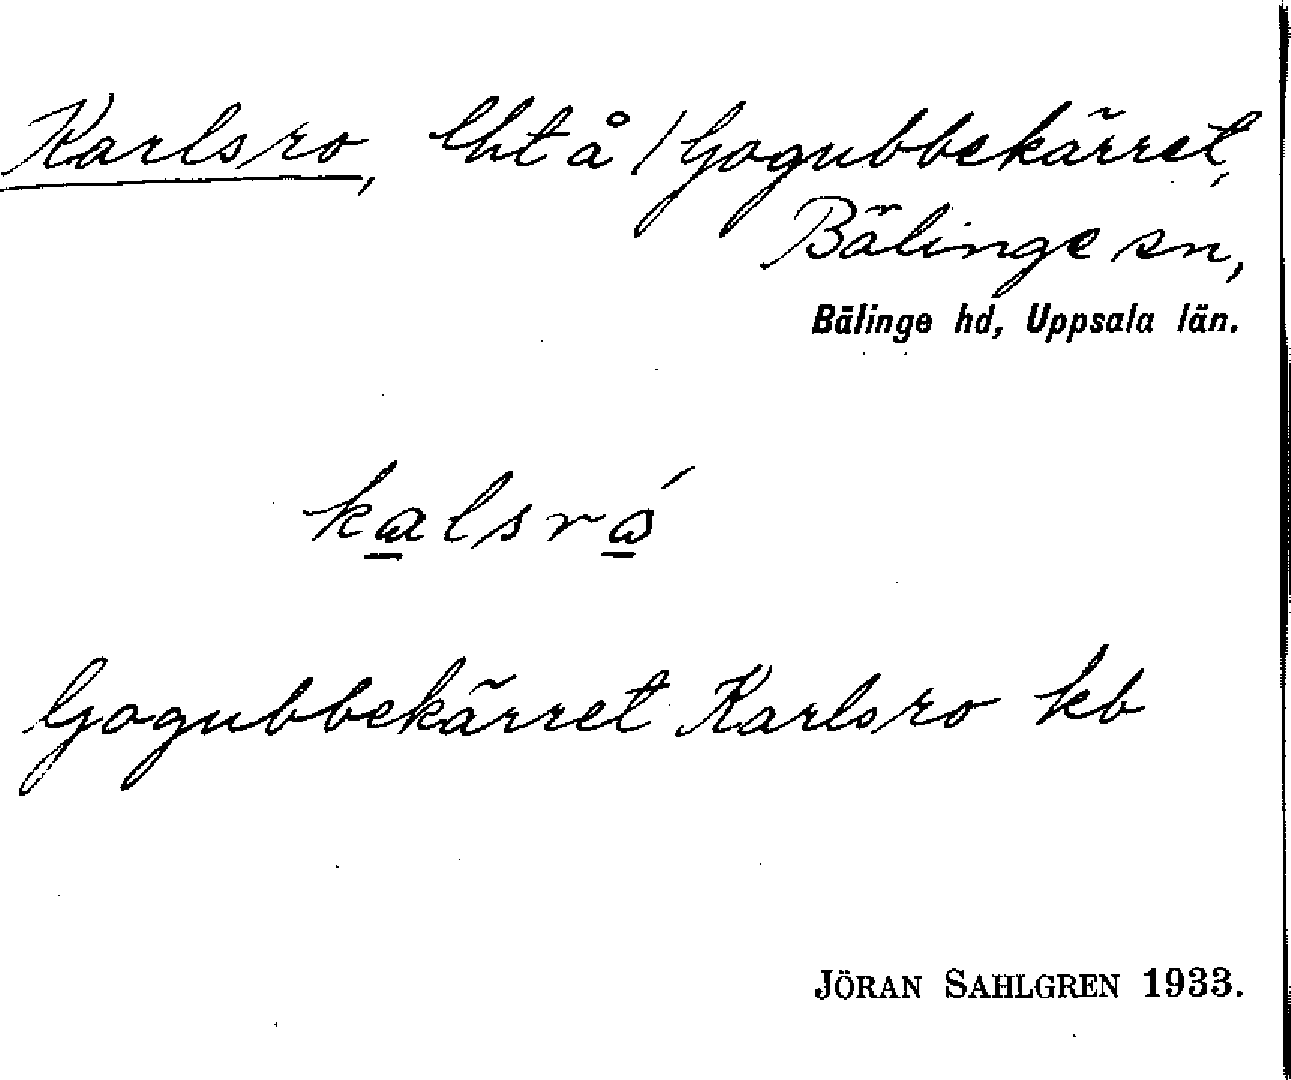 Karlsro, lht å /Gogubbekärret,
Bälinge sn,
Bälinge hd, Uppsala län.
kalsró
Gogubbekärret Karlsro kb
JÖRAN SAHLGREN 1933.